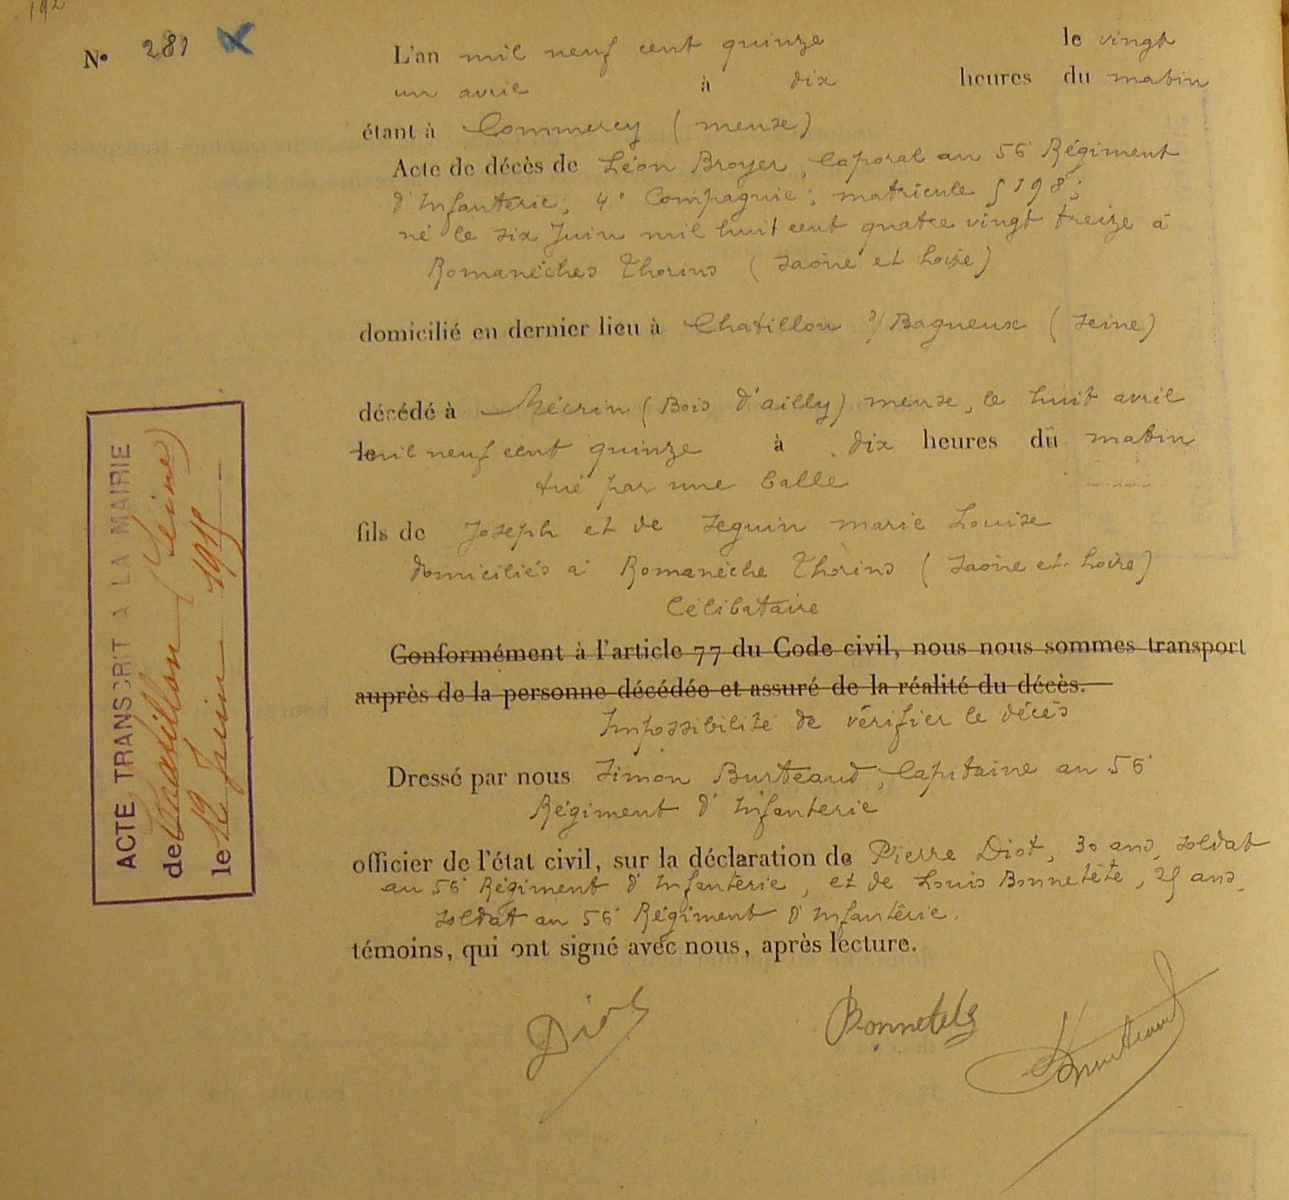 192
N° 281
L'an mil neuf cent quinze le vingt
un avril à dix heures du matin
étant à Commercy (Meuse)
Acte de décès de Léon Broyer, Caporal au 56 Régiment
d'Infanterie; 4° Compagnie; matricule 5198;
né le six Juin mil huit cent quatre vingt treize à
Romanèches Thorins (Saône et Loire)
domicilié en dernier lieu à Chatillon s/ Bagneux (Seine)
décédé à Mécrin (Bois d'ailly) meuse, le huit avril
mil neuf cent quinze à dix heures du matin
tué par une balle
fils de Joseph et de Seguin marie Louise
domiciliés à Romanèche Thorins (Saône et Loire)
Célibataire
Conformément à l'article 77 du Code civil, nous nous sommes transport
auprès de la personne décédée et assuré de la réalité du décès.
Impossibilité de vérifier le décès
Dressé par nous Simon Burteaud, Capitaine au 56°
Régiment d'Infanterie
officier de l'état civil, sur la déclaration de Pierre Diot, 30 ans, soldat
au 56° Régiment d'Infanterie, et de Louis Bonnetête, 25 ans,
soldat au 56° Régiment d'Infanterie.
témoins, qui ont signé avec nous, après lecture.
Diot Bonnetete Burteaud
ACTE TRANSCRIT A LA MAIRIE
de Chatillon (Seine)
le 19 Juin 1915